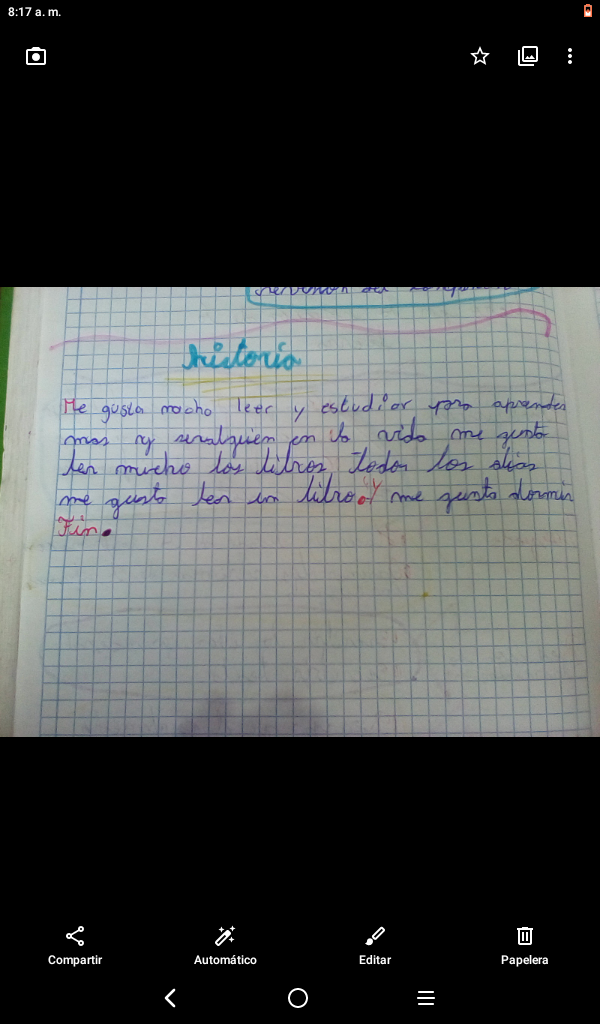 8:17 a. m.
historia
Me gusta mocho leer y estudiar para aprender
mas y ser alguien en la vida me gusta
leer mucho los libros todos los dias
me gusta leer un libro. Y me gusta dormir
Fin.
Compartir
Automático
Editar
Papelera